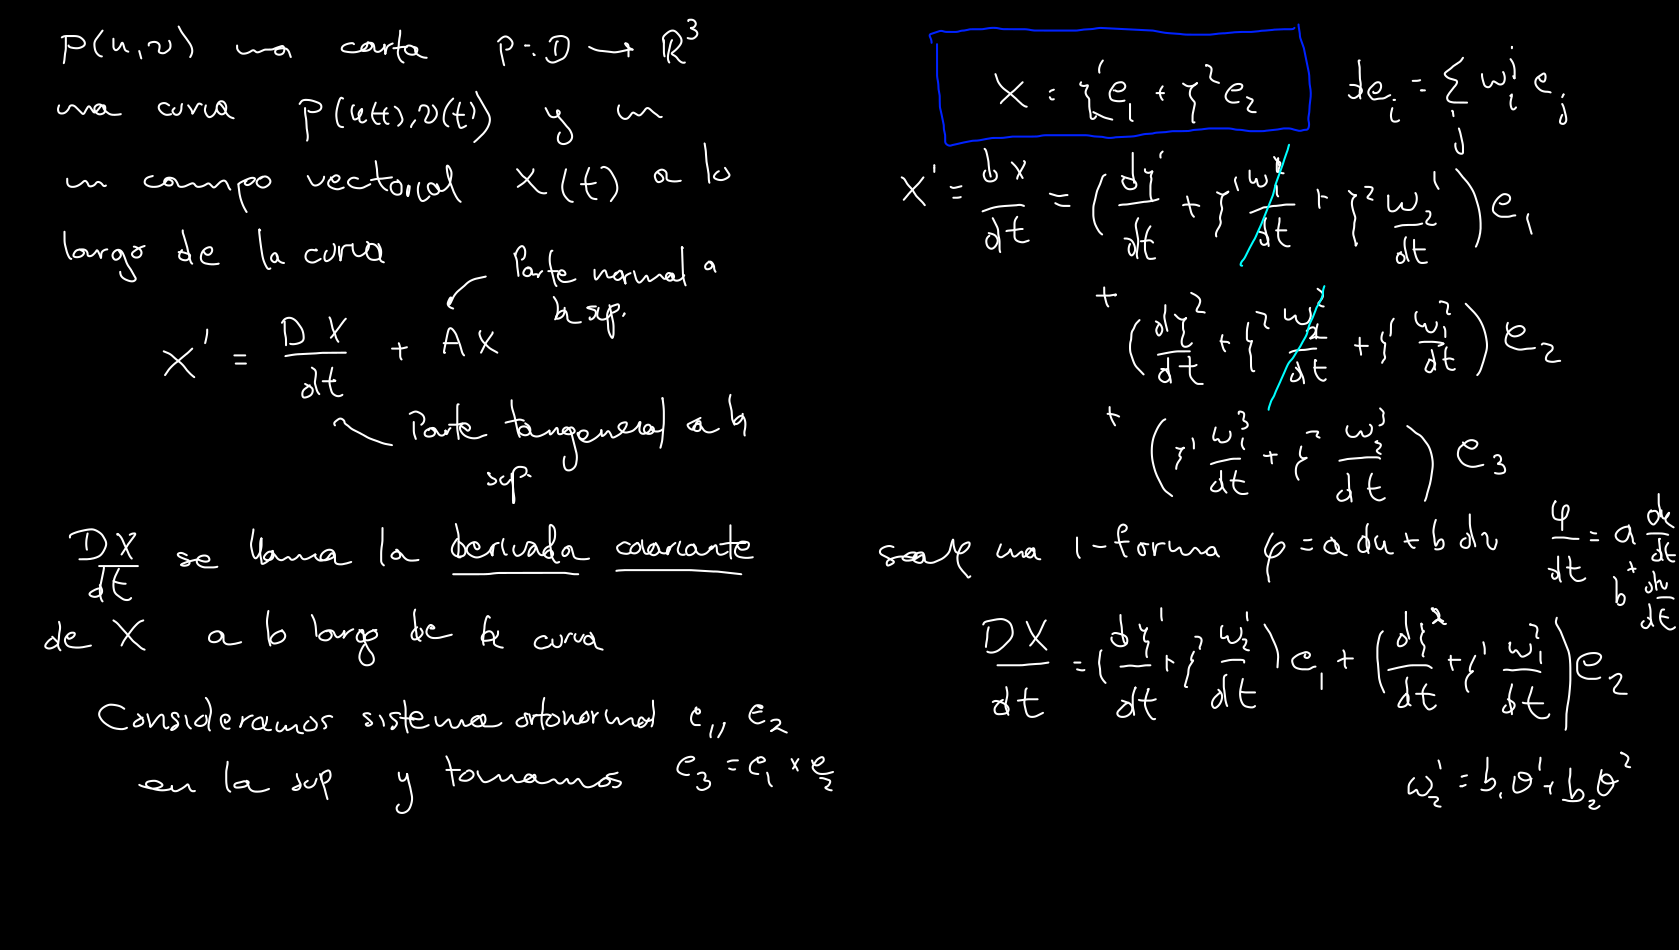 p(u,v) una carta p: D → ℝ³
una curva p(u(t),v(t)) y un
un campo vectorial X(t) a lo
largo de la curva
Parte normal a
la sup.
X' = DX/dt + AX
Parte tangencial a la
sup.
DX/dt se llama la derivada covariante
de X a lo largo de la curva
Consideramos sistema ortonormal e₁, e₂
en la sup y tomamos e₃ = e₁ × e₂
X = ξ¹e₁ + ξ²e₂
deᵢ = Σⱼ wᵢʲ eⱼ
X' = dX/dt = (dξ¹/dt + ξ¹ w₁¹/dt + ξ² w₂¹/dt) e₁
+ (dξ²/dt + ξ² w₂²/dt + ξ¹ w₁²/dt) e₂
+ (ξ¹ w₁³/dt + ξ² w₂³/dt) e₃
sea φ una 1-forma φ = a du + b dv
φ/dt = a du/dt + b dv/dt
DX/dt = (dξ¹/dt + ξ² w₂¹/dt) e₁ + (dξ²/dt + ξ¹ w₁²/dt) e₂
w₂¹ = b₁θ¹ + b₂θ²